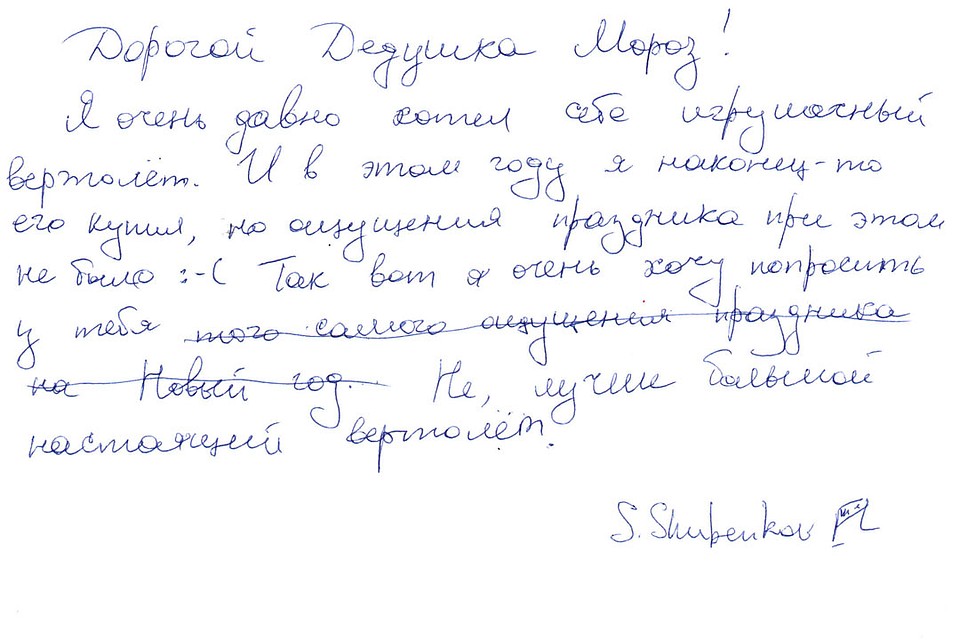 Дорогой Дедушка Мороз!
Я очень давно хотел себе игрушечный
вертолёт. И в этом году я наконец-то
его купил, но ощущения праздника при этом
не было :-( Так вот я очень хочу попросить
у тебя того самого ощущения праздника
на Новый год. Не, лучше большой
настоящий вертолёт.
S. Shubenkov